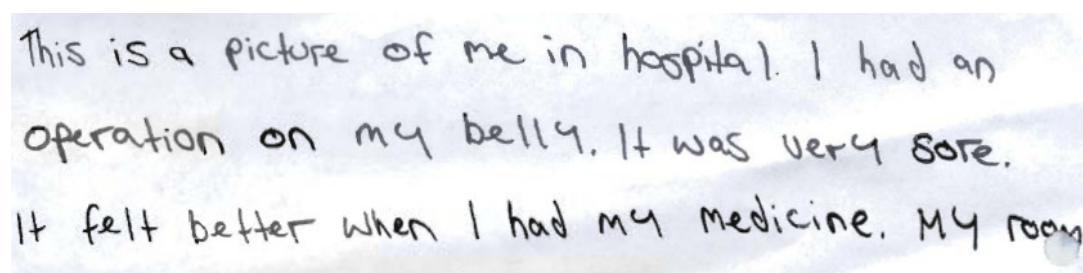 This is a picture of me in hospital. I had an
operation on my belly. It was very sore.
It felt better when I had my medicine. My room